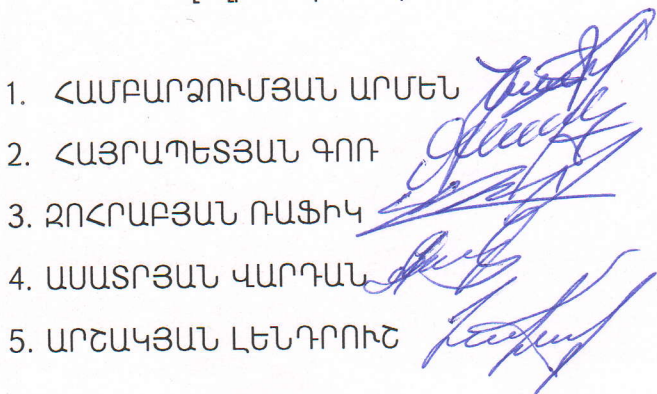 1. ՀԱՄԲԱՐՁՈՒՄՅԱՆ ԱՐՄԵՆ
2. ՀԱՅՐԱՊԵՏՅԱՆ ԳՈՌ
3. ԶՈՀՐԱԲՅԱՆ ՌԱՖԻԿ
4. ԱՍԱՏՐՅԱՆ ՎԱՐԴԱՆ
5. ԱՐՇԱԿՅԱՆ ԼԵՆԴՐՈՒՇ